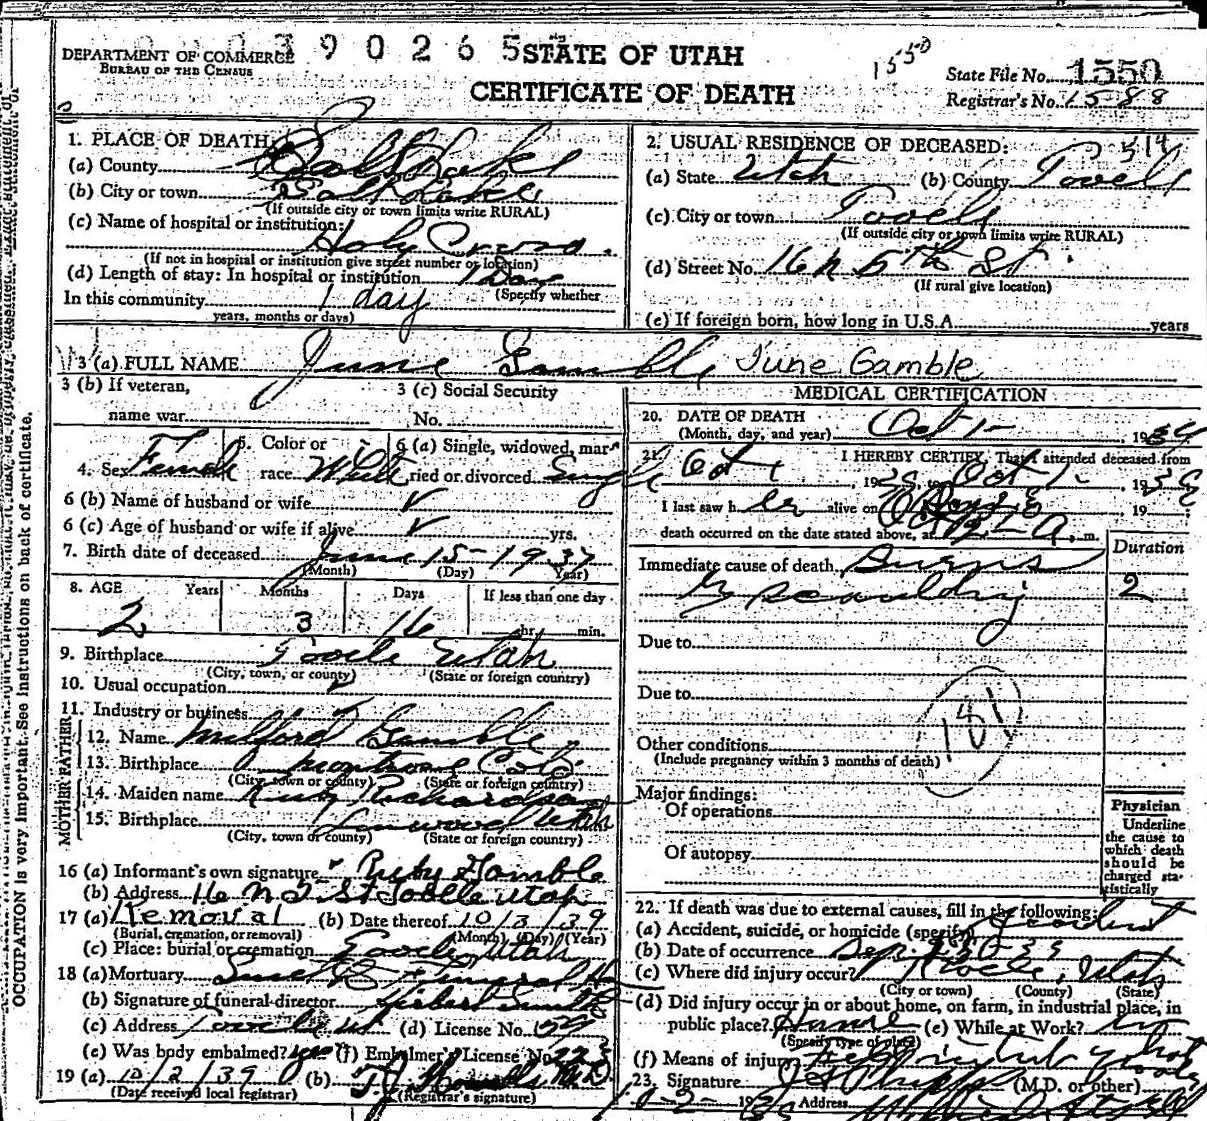 0390265
DEPARTMENT OF COMMERCE
BUREAU OF THE CENSUS
STATE OF UTAH
CERTIFICATE OF DEATH
1550
State File No. 1550
Registrar's No. 1588
1. PLACE OF DEATH
(a) County Salt Lake
(b) City or town Salt Lake
(If outside city or town limits write RURAL)
(c) Name of hospital or institution:
Holy Cross.
(If not in hospital or institution give street number or location)
(d) Length of stay: In hospital or institution 1 Day
(Specify whether
In this community 1 day
years, months or days)
2. USUAL RESIDENCE OF DECEASED:
(a) State Utah (b) County Tooele
(c) City or town Tooele
(If outside city or town limits write RURAL)
(d) Street No. 16 N 5th St.
(If rural give location)
(e) If foreign born, how long in U.S.A. years
3 (a) FULL NAME June Gamble June Gamble
3 (b) If veteran,
name war
3 (c) Social Security
No.
4. Sex Female 5. Color or race White 6 (a) Single, widowed, married or divorced Single
6 (b) Name of husband or wife
6 (c) Age of husband or wife if alive yrs.
7. Birth date of deceased June 15-1937
(Month) (Day) Year)
8. AGE Years Months Days If less than one day
2 3 16 hr. min.
9. Birthplace Tooele Utah
(City, town, or county) (State or foreign country)
10. Usual occupation
11. Industry or business
FATHER
12. Name Milford Gamble
13. Birthplace Montrose Colo
(City, town or county) (State or foreign country)
MOTHER
14. Maiden name Ruby Richardson
15. Birthplace Utah
(City, town or county) (State or foreign country)
16 (a) Informant's own signature Ruby Gamble
(b) Address 16 N 5 St Tooele Utah
17 (a) Removal (b) Date thereof 10/3/39
(Burial, cremation, or removal) (Month) (Day) (Year)
(c) Place: burial or cremation Tooele Utah
18 (a) Mortuary Funeral
(b) Signature of funeral director Herbert
(c) Address Tooele Ut (d) License No. 159
(e) Was body embalmed? yes (f) Embalmer's License No. 223
19 (a) 10/2/39 (b) M.D.
(Date received local registrar) (Registrar's signature)
MEDICAL CERTIFICATION
20. DATE OF DEATH
(Month, day, and year) Oct 1- 1939
21. I HEREBY CERTIFY, That I attended deceased from
Oct 1, 1939, to Oct 1-, 1939
I last saw her alive on 19
death occurred on the date stated above, at 12 A. m.
Duration
Immediate cause of death Burns 2
by scalding
Due to
Due to
181
Other conditions
(Include pregnancy within 3 months of death)
Major findings:
Of operations
Of autopsy
Physician
Underline
the cause to
which death
should be
charged sta-
tistically
22. If death was due to external causes, fill in the following:
(a) Accident, suicide, or homicide (specify) Accident
(b) Date of occurrence Sep. 30-39
(c) Where did injury occur? Tooele, Utah
(City or town) (County) (State)
(d) Did injury occur in or about home, on farm, in industrial place, in
public place? Home (e) While at Work? no
(Specify type of place)
(f) Means of injury Fell in tub of hot water
23. Signature (M.D. or other)
10-2- 19 Address
OCCUPATION is very important. See instructions on back of certificate.